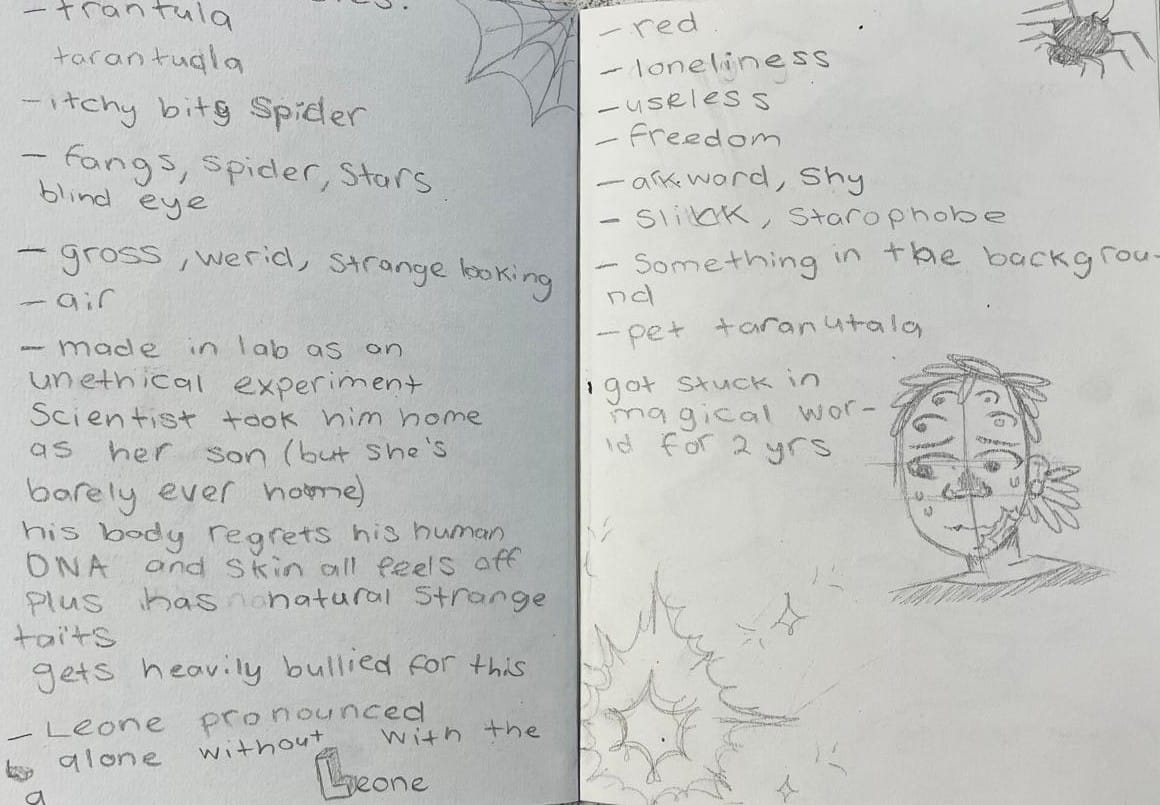 - trantula
tarantuala
- itchy bity Spider
- fangs, spider, Stars
blind eye
- gross, werid, strange looking
- air
- made in lab as an
unethical experiment
Scientist took him home
as her son (but she's
barely ever home)
his body regrets his human
DNA and skin all peels off
plus has natural Strange
taits
gets heavily bullied for this
- Leone pronounced
alone without with the
a
Leone
- red
- loneliness
- useless
- freedom
- arkward, shy
- Slikk, starophobe
- Something in the backgrou-
nd
- pet taranutala
got stuck in
magical wor-
ld for 2 yrs